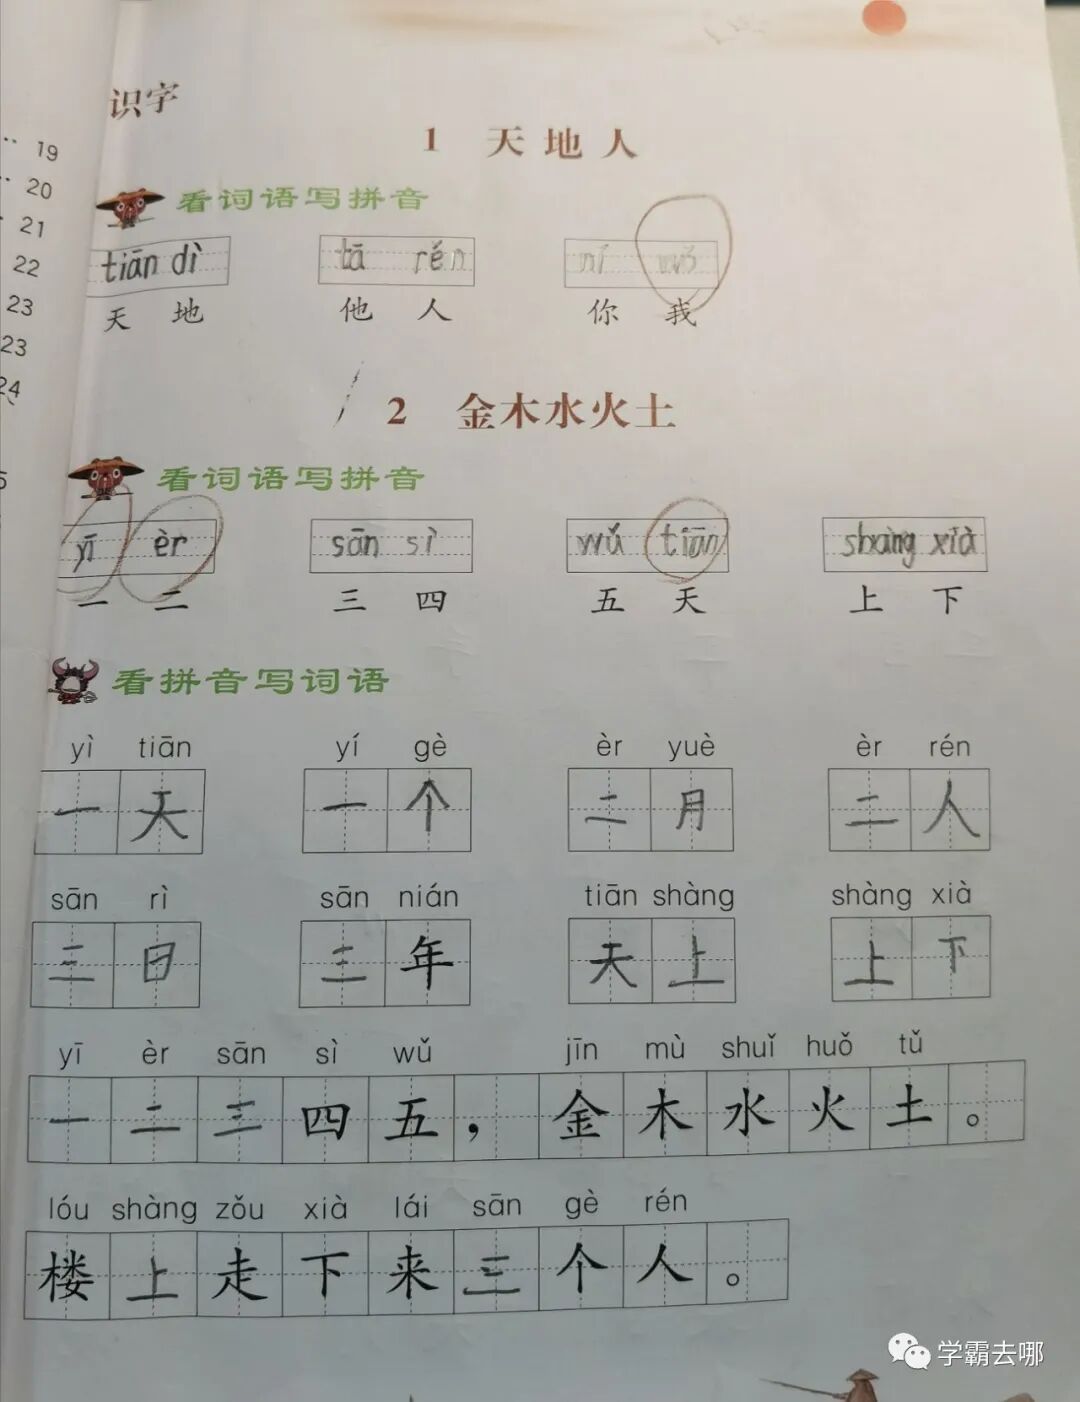 识字
19
20
21
22
23
23
24
5
1 天地人
看词语写拼音
tiān dì tā rén nǐ wǒ
天 地 他 人 你 我
2 金木水火土
看词语写拼音
yī èr sān sì wǔ tiān shàng xià
一 二 三 四 五 天 上 下
看拼音写词语
yì tiān yí gè èr yuè èr rén
一天 一个 二月 二人
sān rì sān nián tiān shàng shàng xià
三日 三年 天上 上下
yī èr sān sì wǔ jīn mù shuǐ huǒ tǔ
一二三四五，金木水火土。
lóu shàng zǒu xià lái sān gè rén
楼上走下来三个人。
学霸去哪